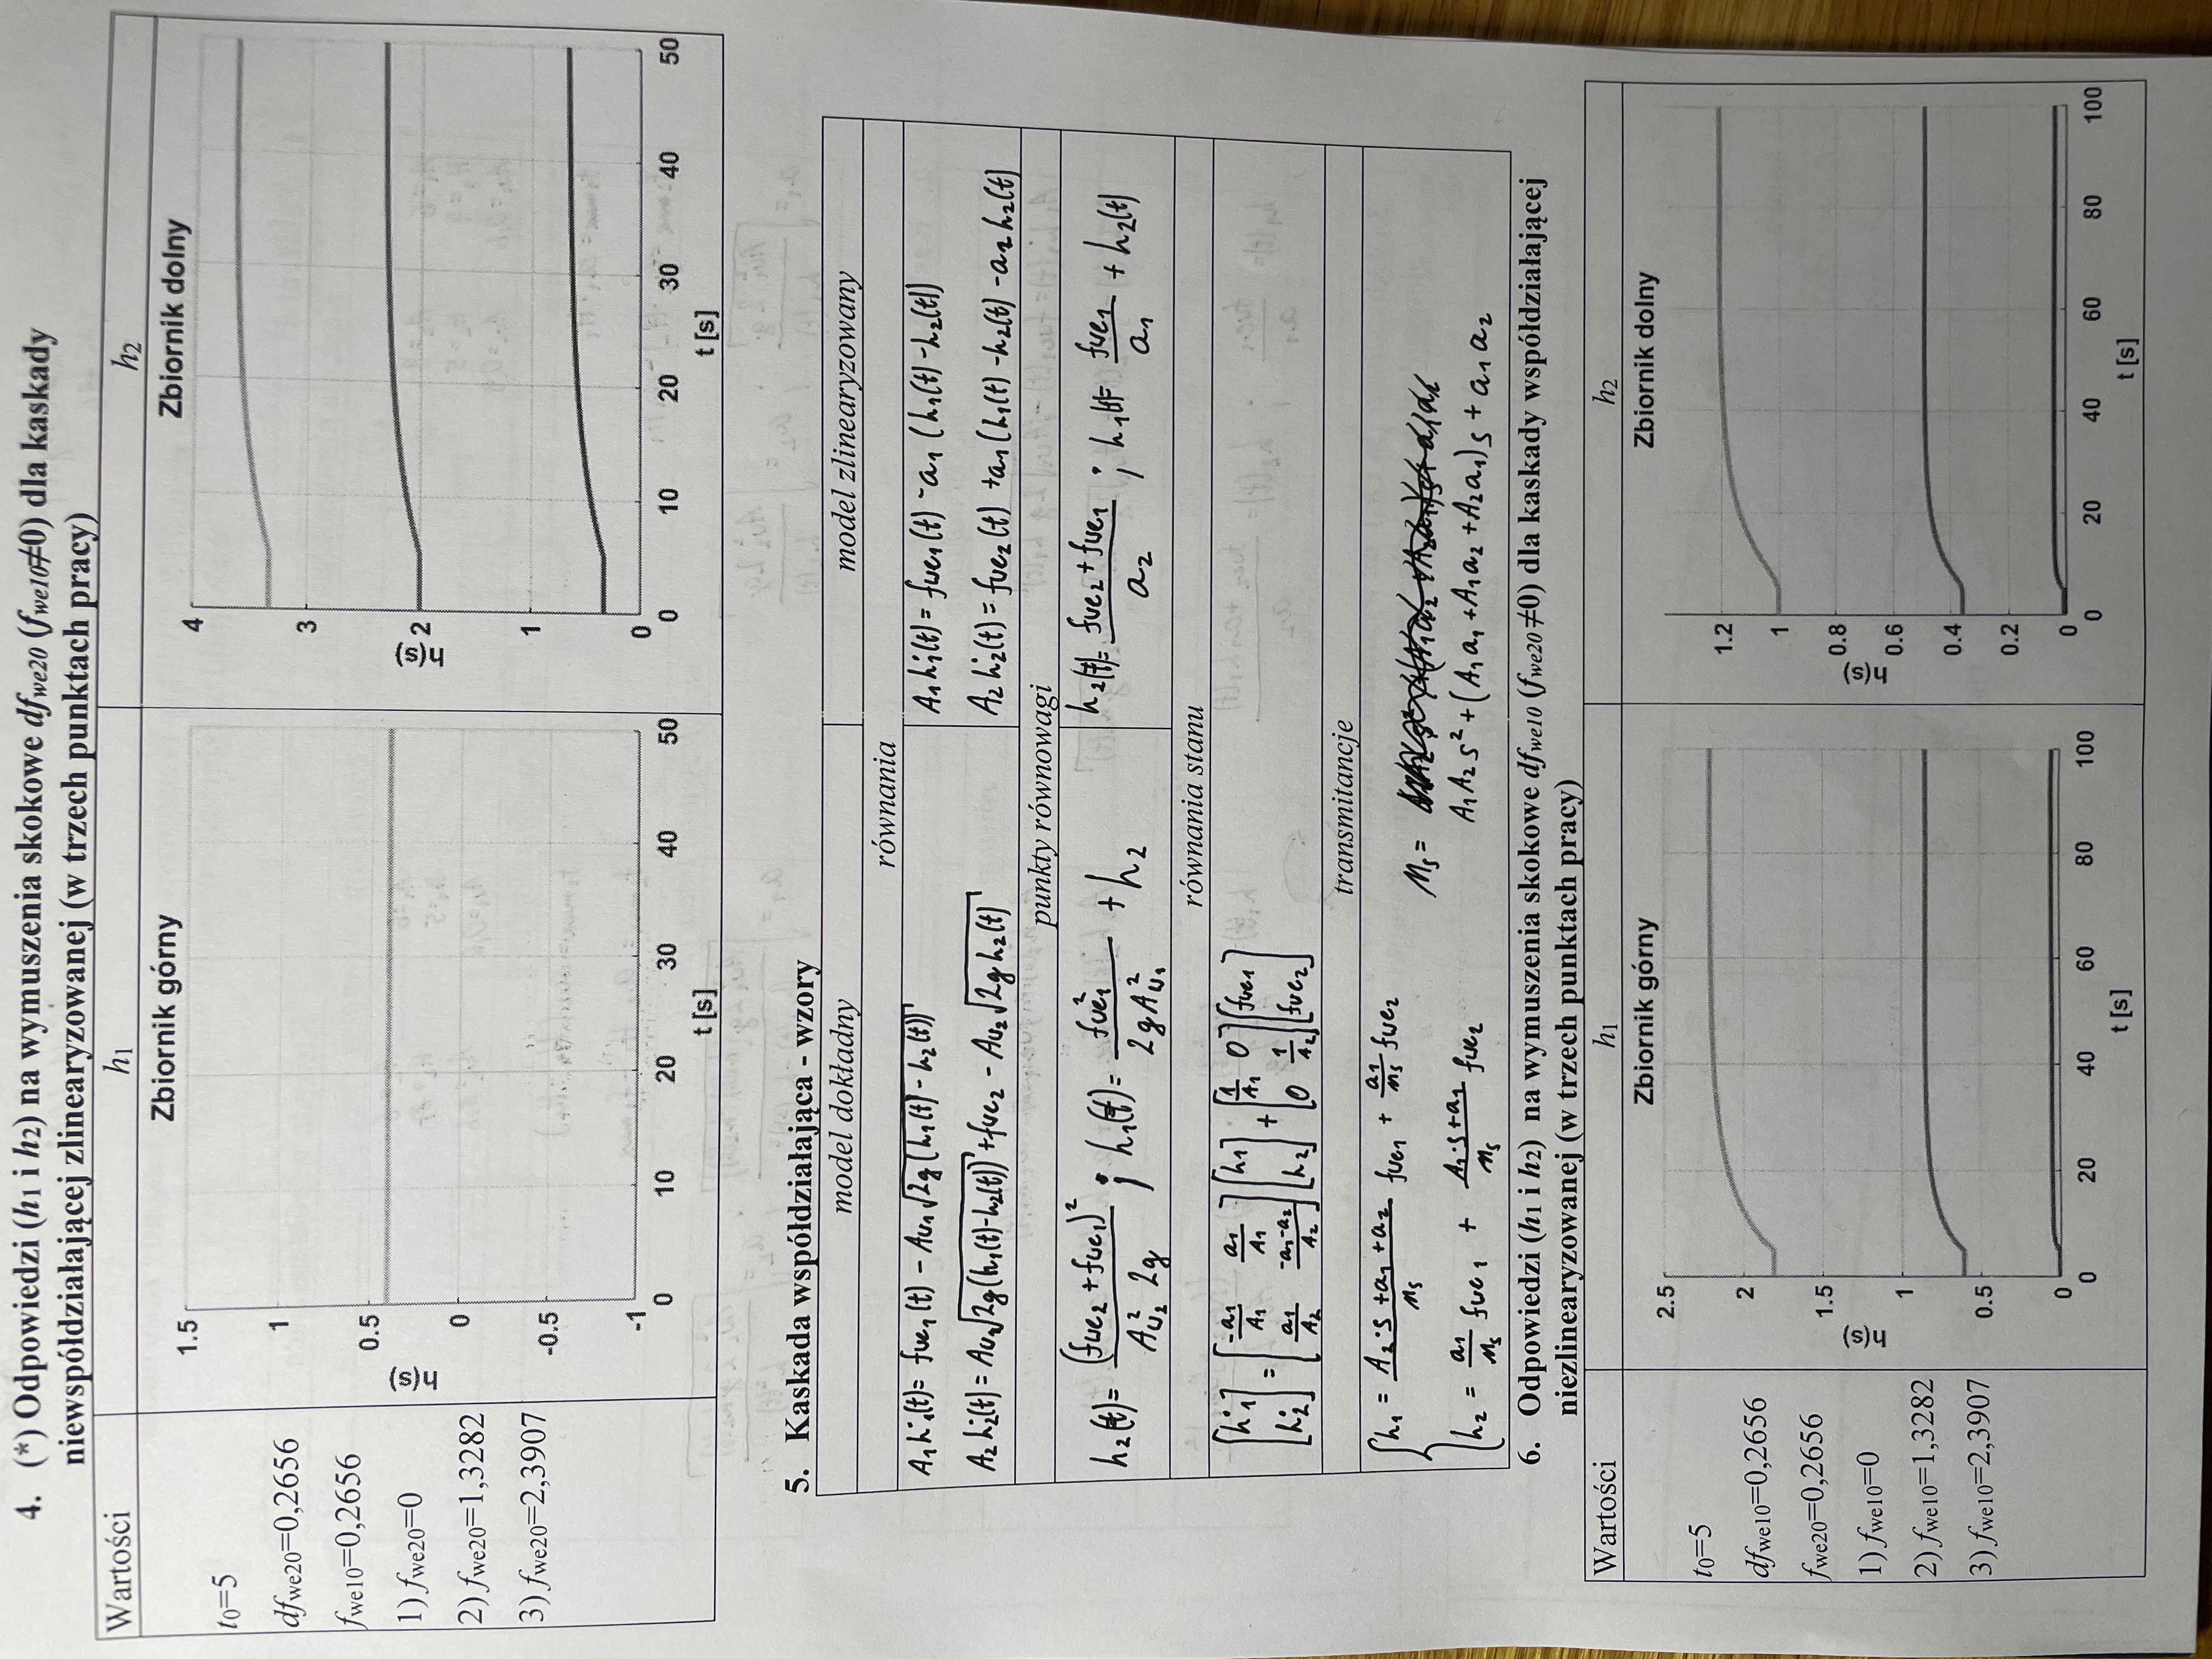 4. (*) Odpowiedzi (h1 i h2) na wymuszenia skokowe dfwe20 (fwe10≠0) dla kaskady
niewspółdziałającej zlinearyzowanej (w trzech punktach pracy)
Wartości
h1
h2
t0=5
dfwe20=0,2656
fwe10=0,2656
1) fwe20=0
2) fwe20=1,3282
3) fwe20=2,3907
Zbiornik górny
1.5
1
0.5
0
-0.5
-1
h(s)
0 10 20 30 40 50
t [s]
Zbiornik dolny
4
3
2
1
0
h(s)
0 10 20 30 40 50
t [s]
5. Kaskada współdziałająca - wzory
model dokładny
model zlinearyzowany
równania
A₁ḣ₁(t)= fwe₁(t) - Aw₁√(2g(h₁(t)-h₂(t)))
A₁ḣ₁(t)= fwe₁(t) -a₁ (h₁(t)-h₂(t))
A₂ḣ₂(t)= Aw₁√(2g(h₁(t)-h₂(t))) +fwe₂ - Aw₂√(2gh₂(t))
A₂ḣ₂(t)= fwe₂(t) +a₁(h₁(t) -h₂(t) -a₂ h₂(t)
punkty równowagi
h₂(t)= (fwe₂ +fwe₁)² / Aw₂² 2g ; h₁(t)= fwe₁² / 2gAw₁² + h₂
h₂(t)= fwe₂+fwe₁ / a₂ ; h₁(t)= fwe₁ / a₁ + h₂(t)
równania stanu
[ḣ₁ ḣ₂] = [-a₁/A₁ a₁/A₁ a₁/A₂ -a₁-a₂/A₂] [h₁ h₂] + [1/A₁ 0 0 1/A₂] [fwe₁ fwe₂]
transmitancje
h₁ = A₂·s +a₁ +a₂ / Ms fwe₁ + a₁/Ms fwe₂
Ms =
h₂ = a₁/Ms fwe₁ + A₁·s+a₁ / Ms fwe₂
A₁A₂s² + (A₁a₁ +A₁a₂ +A₂a₁)s + a₁a₂
6. Odpowiedzi (h1 i h2) na wymuszenia skokowe dfwe10 (fwe20 ≠0) dla kaskady współdziałającej
niezlinearyzowanej (w trzech punktach pracy)
Wartości
h1
h2
t0=5
dfwe10=0,2656
fwe20=0,2656
1) fwe10=0
2) fwe10=1,3282
3) fwe10=2,3907
Zbiornik górny
2.5
2
1.5
1
0.5
0
h(s)
0 20 40 60 80 100
t [s]
Zbiornik dolny
1.2
1
0.8
0.6
0.4
0.2
0
h(s)
0 20 40 60 80 100
t [s]